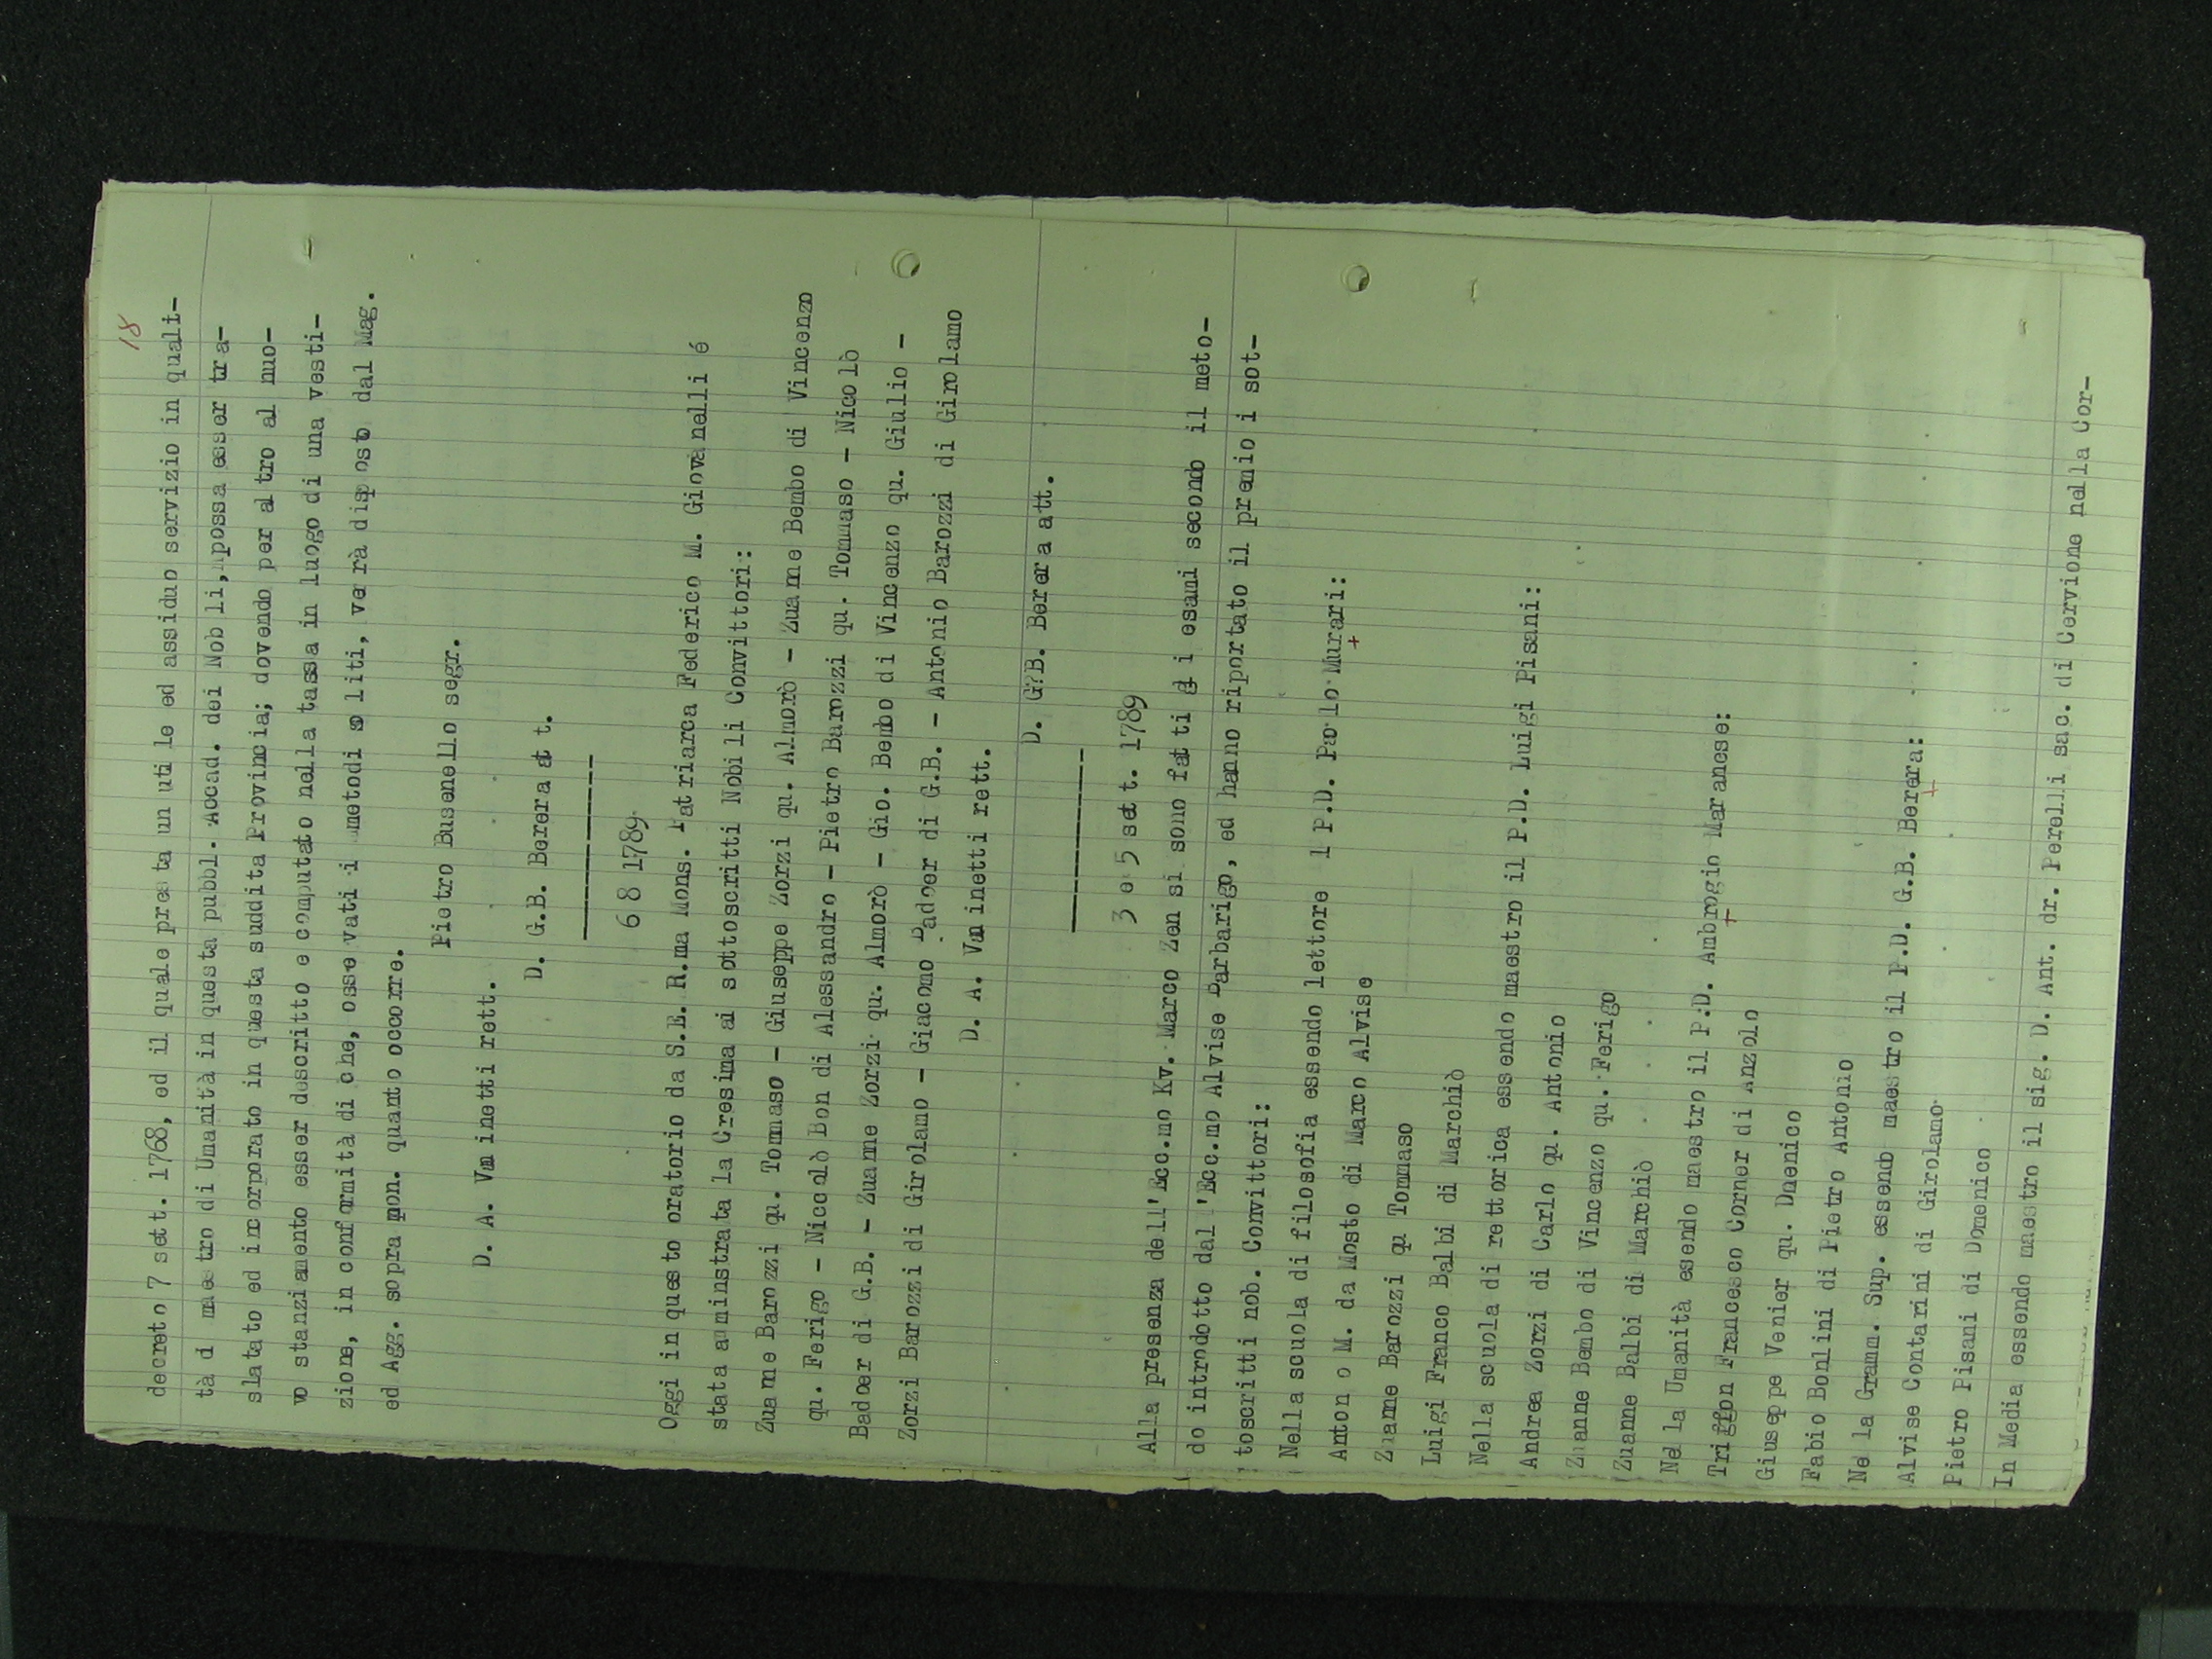 18
decreto 7 sett. 1768, ed il quale presta un utile ed assiduo servizio in quali-
tà d maestro di Umanità in questa pubbl. Accad. dei Nobili, possa esser tra-
slatato ed incorporato in questa suddita Provincia; dovendo per altro al nuo-
vo stanziamento esser descritto e computato nella tassa in luogo di una vesti-
zione, in conformità di che, osse vati i metodi soliti, verrà disposto dal Mag.
ed Agg. sopra mon. quanto occorre.
Pietro Busenello segr.
D. A. Vaninetti rett.
D. G.B. Berera att.
-----------
6 8 1789
Oggi in questo oratorio da S.E. R.ma Mons. Patriarca Federico M. Giovanelli é
stata amminstrata la Cresima ai sottoscritti Nobili Convittori:
Zuanne Barozzi qu. Tommaso - Giuseppe Zorzi qu. Almorò - Zuanne Bembo di Vincenzo
qu. Ferigo - Niccolò Bon di Alessandro - Pietro Barozzi qu. Tommaso - Nicolò
Badoer di G.B. - Zuanne Zorzi qu. Almorò - Gio. Bembo di Vincenzo qu. Giulio -
Zorzi Barozzi di Girolamo - Giacomo Badoer di G.B. - Antonio Barozzi di Girolamo
D. A. Vaninetti rett.
D. G?B. Berera att.
-----------
3 e 5 sett. 1789
Alla presenza dell'Ecc.mo Kv. Marco Zen si sono fatti gl i esami secondo il meto-
do introdotto dall'Ecc.mo Alvise Barbarigo, ed hanno riportato il premio i sot-
toscritti nob. Convittori:
Nella scuola di filosofia essendo lettore l P.D. Paolo Murari:
Anton o M. da Mosto di Marco Alvise
Zuanne Barozzi qu Tommaso
Luigi Franco Balbi di Marchiò
Nella scuola di rettorica essendo maestro il P.D. Luigi Pisani:
Andrea Zorzi di Carlo qu. Antonio
Zuanne Bembo di Vincenzo qu. Ferigo
Zuanne Balbi di Marchiò
Nella Umanità esendo maestro il P.D. Ambrogio Maranese:
Triffon Francesco Corner di Anzolo
Giuseppe Venier qu. Dnenico
Fabio Bonlini di Pietro Antonio
Nella Gramm. Sup. essendo maestro il P.D. G.B. Berera:
Alvise Contarini di Girolamo
Pietro Pisani di Domenico
In Media essendo maestro il sig. D. Ant. dr. Perelli sac. di Cervione nella Cor-